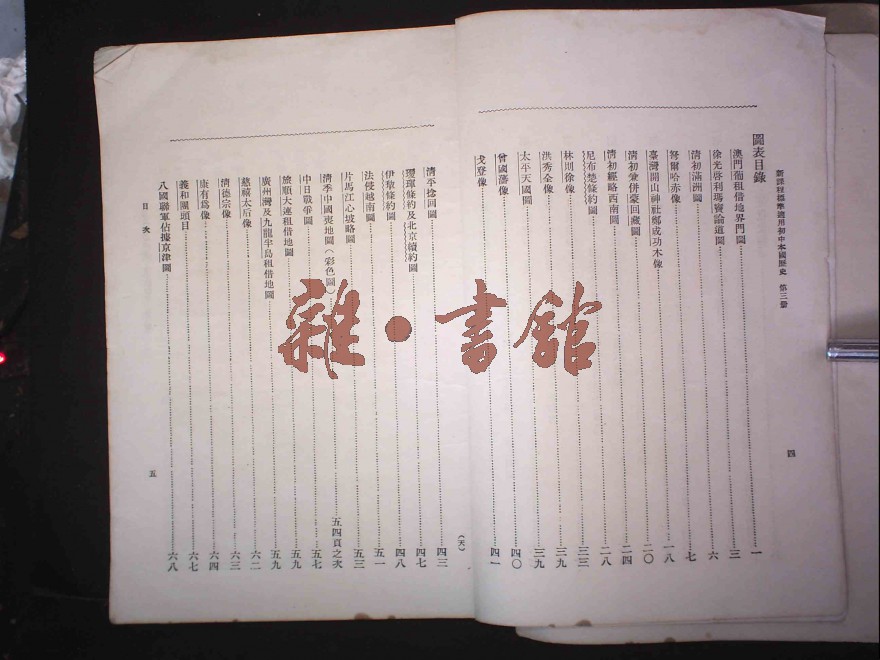 新課程標準適用初中本國歷史 第三册
四
圖表目錄
澳門葡租借地界門圖 一
徐光啓利瑪竇論道圖 三
清初滿洲圖 六
努爾哈赤像 七
臺灣開山神社鄭成功木像 一八
清初兼併蒙回藏圖 二〇
清初經略西南圖 二四
尼布楚條約圖 二八
林則徐像 三三
洪秀全像 三九
太平天國圖 三九
曾國藩像 四〇
戈登像 四一
(天)
清平捻回圖 四三
璦琿條約及北京續約圖 四七
伊犂條約圖 四八
法侵越南圖 五一
片馬江心坡略圖 五三
清季中國喪地圖(彩色圖) 五四頁之次
中日戰爭圖 五七
旅順大連租借地圖 五九
廣州灣及九龍半島租借地圖 五九
慈禧太后像 六二
清德宗像 六三
康有爲像 六四
義和團頭目 六七
八國聯軍佔據京津圖 六八
目次
五
雜·書館